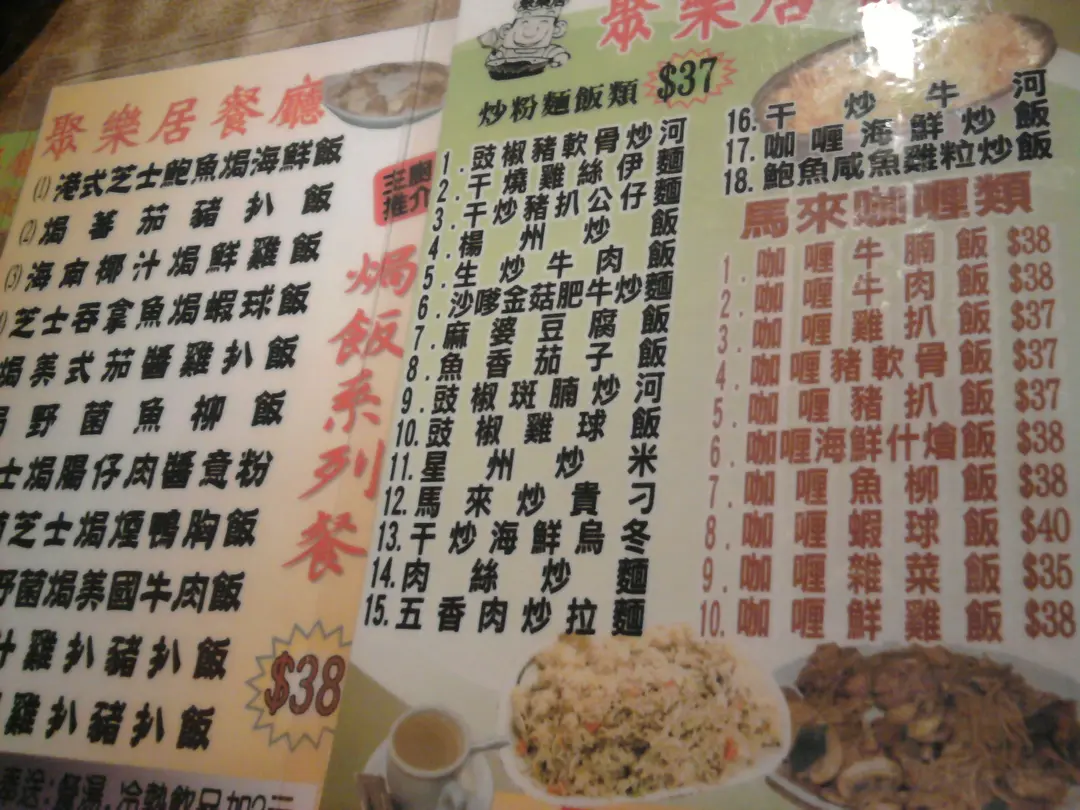 聚樂居餐廳
(1) 港式芝士鮑魚焗海鮮飯
(2) 焗蕃茄豬扒飯
(3) 海南椰汁焗鮮雞飯
芝士吞拿魚焗蝦球飯
焗美式茄醬雞扒飯
野菌魚柳飯
士焗腸仔肉醬意粉
芝士焗煙鴨胸飯
野菌焗美國牛肉飯
汁雞扒豬扒飯
雞扒豬扒飯
$38
奉送:餐湯,冷熱飲品加2元
主廚
推介
焗飯系列餐
聚樂居
聚樂居
炒粉麵飯類 $37
1. 豉椒豬軟骨炒河
2. 干燒雞絲伊麵
3. 干炒豬扒公仔麵
4. 楊州炒飯
5. 生炒牛肉飯
6. 沙嗲金菇肥牛炒麵
7. 麻婆豆腐飯
8. 魚香茄子飯
9. 豉椒斑腩炒河
10. 豉椒雞球飯
11. 星州炒米
12. 馬來炒貴刁
13. 干炒海鮮烏冬
14. 肉絲炒麵
15. 五香肉炒拉麵
16. 干炒牛河
17. 咖喱海鮮炒飯
18. 鮑魚咸魚雞粒炒飯
馬來咖喱類
1. 咖喱牛腩飯 $38
2. 咖喱牛肉飯 $38
3. 咖喱雞扒飯 $37
4. 咖喱豬軟骨飯 $37
5. 咖喱豬扒飯 $37
6. 咖喱海鮮什燴飯 $38
7. 咖喱魚柳飯 $38
8. 咖喱蝦球飯 $40
9. 咖喱雜菜飯 $35
10. 咖喱鮮雞飯 $38